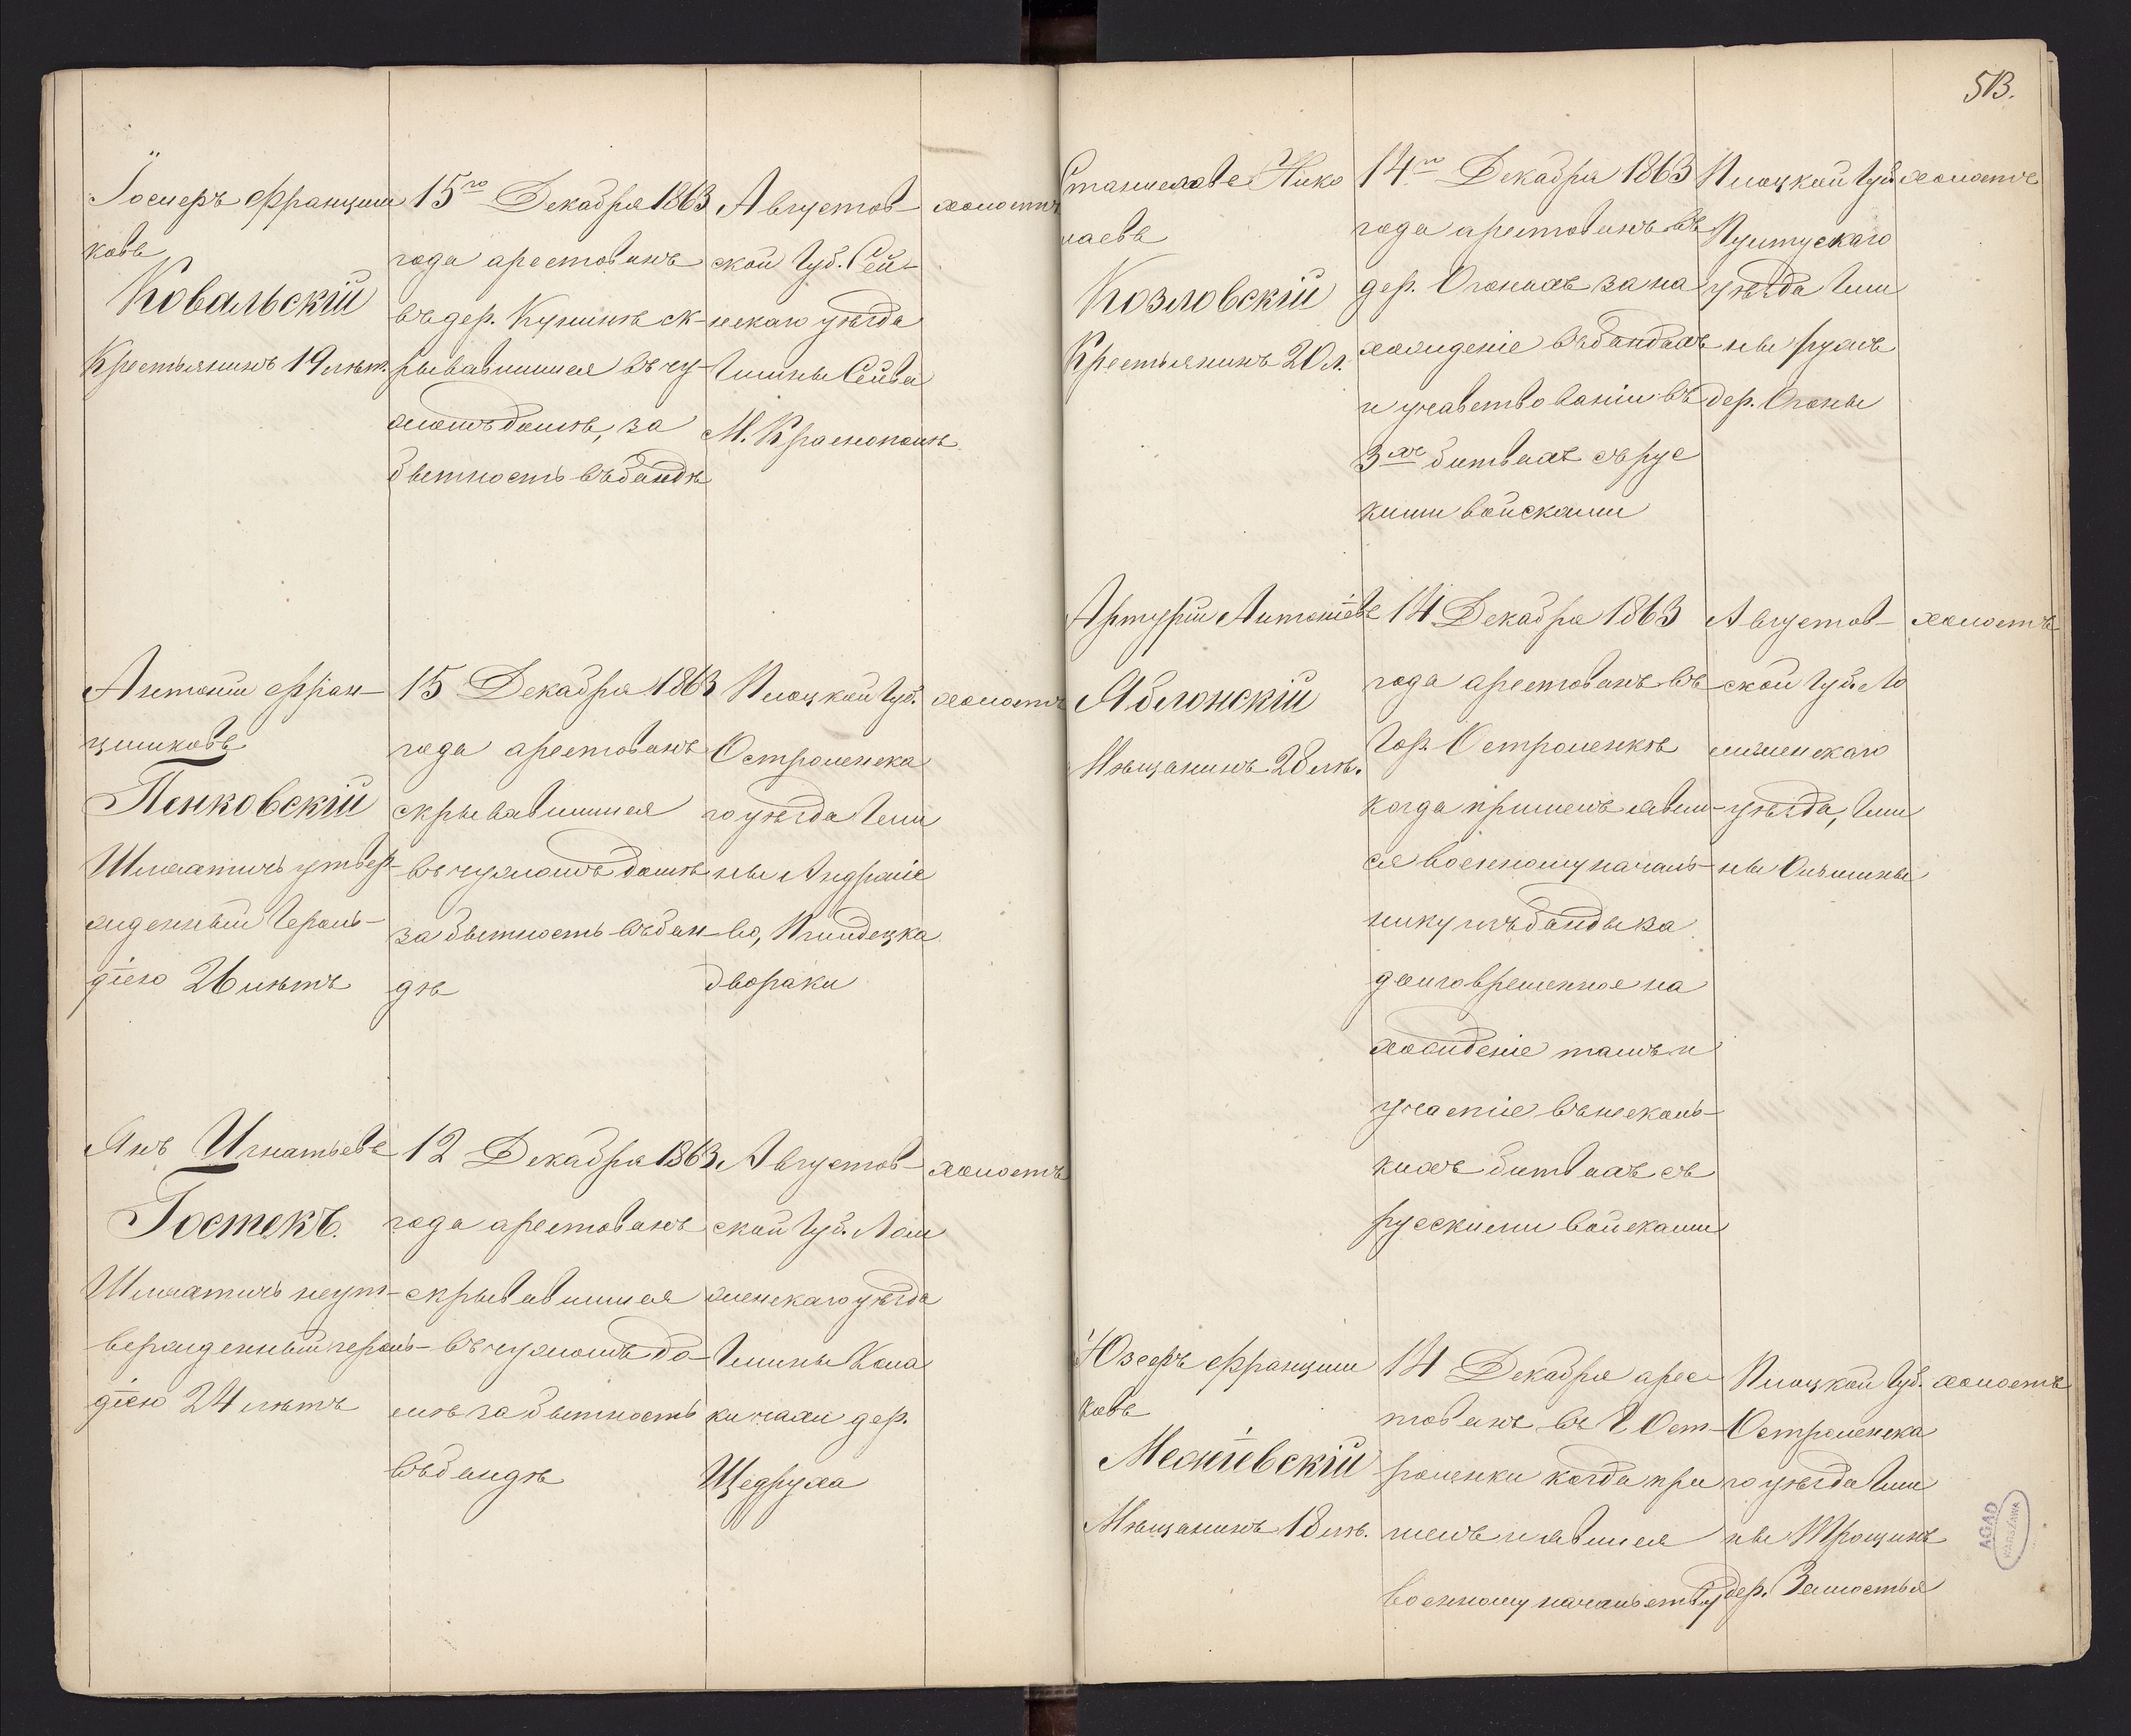 513.
Іосиръ Францишковъ
Ковальскій
Крестьянинъ 19 лѣт.
15го Декабря 1863
года арестованъ
въ дер. Кушинѣ ск-
рывавшимся въ чу-
жомъ домѣ, за
бытность въ бандѣ
Августов-
ской Губ. Сей-
нскаго уѣзда
Гмины Сейва
М. Краснополь
холостъ
Антоній Фран-
цишковъ
Пенковскій
Шляхтичъ утвер-
жденный Героль-
діею 26 лѣтъ
15 Декабря 1863
года арестованъ
скрывавшимся
въ чужомъ домѣ
за бытность въ бан-
дѣ
Плоцкой Губ.
Остроленска
го уѣзда Гми
ны Андраніе
во,
двораки
холостъ
Янъ Игнатьевъ
Гостекъ.
Шляхтичъ неут-
вержденный героль-
діею 24 лѣтъ
12 Декабря 1863
года арестованъ
скрывавшимся
въ чужомъ до-
мѣ за бытность
въ бандѣ
Августов-
ской Губ. Лом
женскаго уѣзда
Гмины Кома
дер.
Щедруха
холостъ
Станиславъ Нико
лаевъ
Козловскій
Крестьянинъ 20 л.
14го Декабря 1863
года арестованъ въ
дер. Огонахъ за на
хожденіе въ бандахъ
и учавствованіи въ
3хъ битвахъ съ рус
кими войсками
Плоцкой Губ.
Пултускаго
уѣзда Гми
ны
дер. Огоны
холостъ
Артурій Антоніевъ
Яблонскій
Мѣщанинъ 28 лѣ.
14 Декабря 1863
года арестованъ въ
Гор. Остроленкѣ
когда пришелъ явил-
ся военному началь-
нику изъ банды за
долговременное на
хожденіе тамъ и
участіе въ несколь-
кихъ битвахъ съ
русскими войсками
Августов-
ской Губ. Ло
мженскаго
уѣзда, Гми
ны Ольшины
холостъ
Юзефъ Францишковъ
Меснѣевскій
Мѣщанинъ 18 лѣ.
14 Декабря арес-
тованъ въ Г. Ост-
роленки когда при
шелъ и явился
военному начальству
Плоцкой Губ.
Остроленска
го уѣзда Гми
ны Трощинъ
дер. Замостья
холостъ
AGAD
WARSZAWA